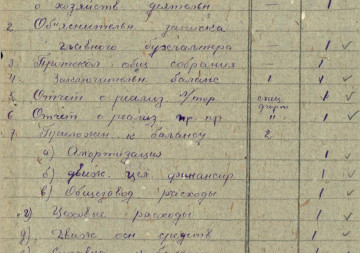 о хозяйств. деятельн. 1
2. Объяснительн. записка
главного бухгалтера — 1 ✓
3. Протокол общ собрания — 1
4. Заключительн. баланс 1 1 ✓
5. Отчёт о реализ. 1 ✓
6. Отчёт о реализ. пр. пр. " 1 ✓
7. Приложен. к балансу 2
а) Амортизация 1 ✓
б) движ. цел. финансир. 1 ✓
в) Общезавод расходы 1 ✓
г) Цеховые расходы 1 ✓
д) Движ осн средств 1 ✓